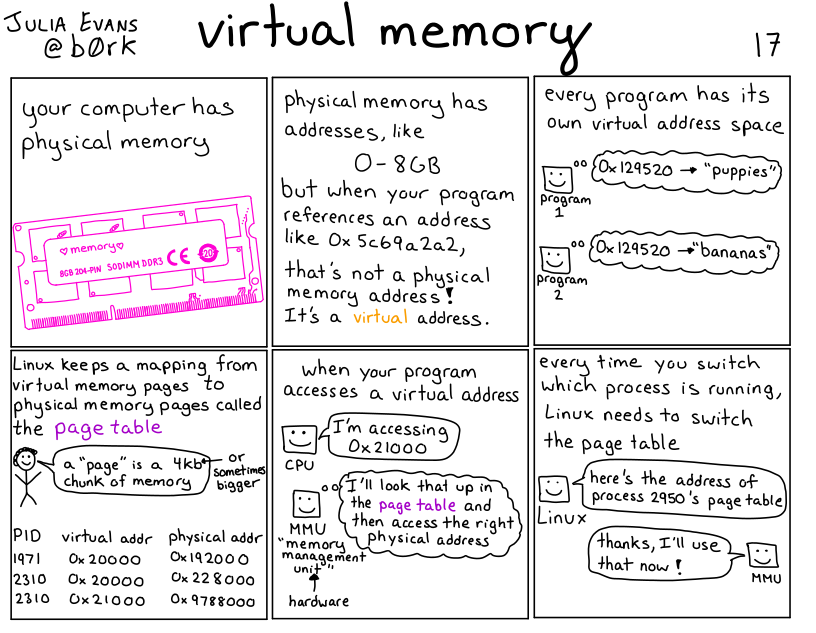 JULIA EVANS
@b0rk
virtual memory
17
your computer has
physical memory
♡memory♡
8GB 204-PIN SODIMM DDR3 CE 20
physical memory has
addresses, like
0-8GB
but when your program
references an address
like 0x5c69a2a2,
that's not a physical
memory address!
It's a virtual address.
every program has its
own virtual address space
program
1
0x129520 → "puppies"
program
2
0x129520 → "bananas"
Linux keeps a mapping from
virtual memory pages to
physical memory pages called
the page table
a "page" is a 4kb
chunk of memory
or
sometimes
bigger
PID virtual addr physical addr
1971 0x20000 0x192000
2310 0x20000 0x228000
2310 0x21000 0x9788000
when your program
accesses a virtual address
CPU
I'm accessing
0x21000
I'll look that up in
the page table and
then access the right
physical address
MMU
"memory
management
unit"
hardware
every time you switch
which process is running,
Linux needs to switch
the page table
here's the address of
process 2950's page table
Linux
thanks, I'll use
that now!
MMU